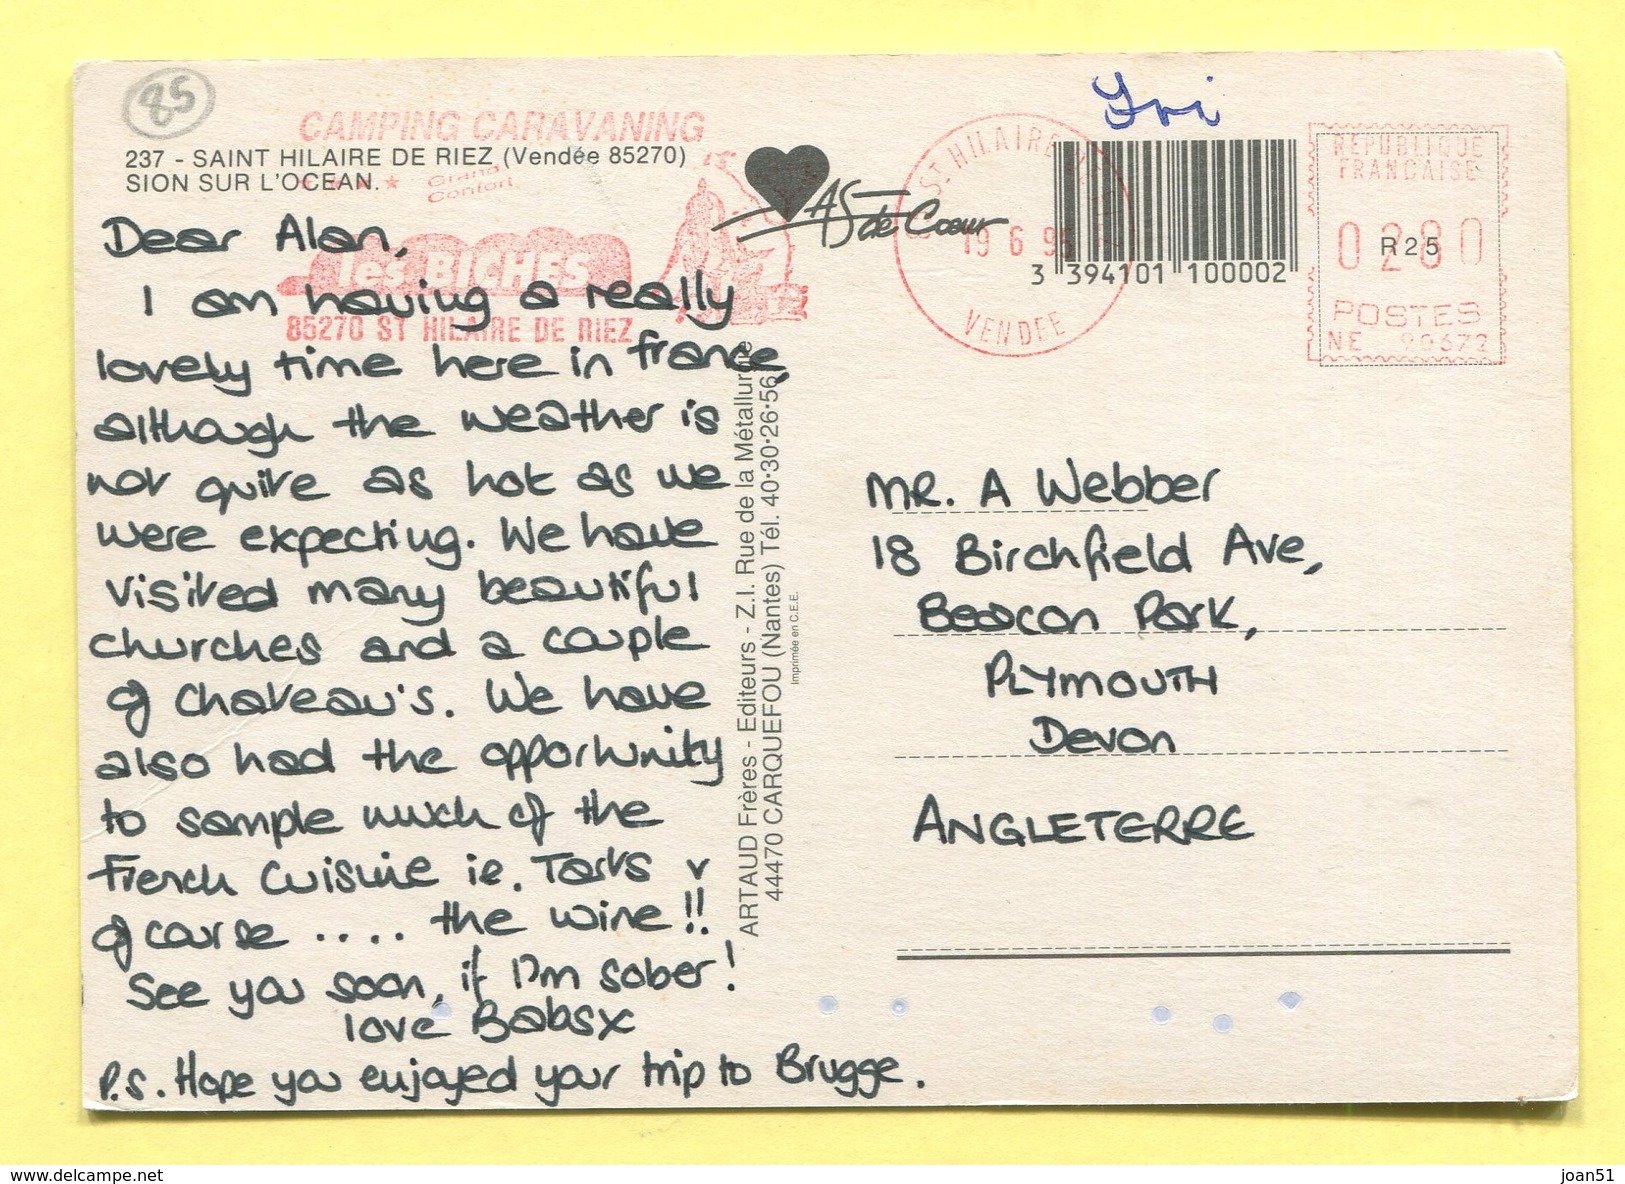 85
CAMPING CARAVANING
237 - SAINT HILAIRE DE RIEZ (Vendée 85270)
SION SUR L'OCEAN.
Grand
Confort
les BICHES
85270 ST HILAIRE DE RIEZ
AS de Coeur
ST HILAIRE
19 6 95
VENDEE
3 394101 100002
REPUBLIQUE
FRANCAISE
0280
R25
POSTES
NE 90672
Dear Alan,
I am having a really
lovely time here in france,
although the weather is
not quite as hot as we
were expecting. We have
visited many beautiful
churches and a couple
of Chateau's. We have
also had the opportunity
to sample much of the
French Cuisine ie. Tarts v
of course .... the wine!!
See you soon, if I'm sober!
love Babsx
P.S. Hope you enjoyed your trip to Brugge.
ARTAUD Frères - Editeurs - Z.I. Rue de la Métallurgie
44470 CARQUEFOU (Nantes) Tél. 40·30·26·56
Imprimée en C.E.E.
MR. A Webber
18 Birchfield Ave,
Beacon Park,
PLYMOUTH
Devon
ANGLETERRE
www.delcampe.net
joan51